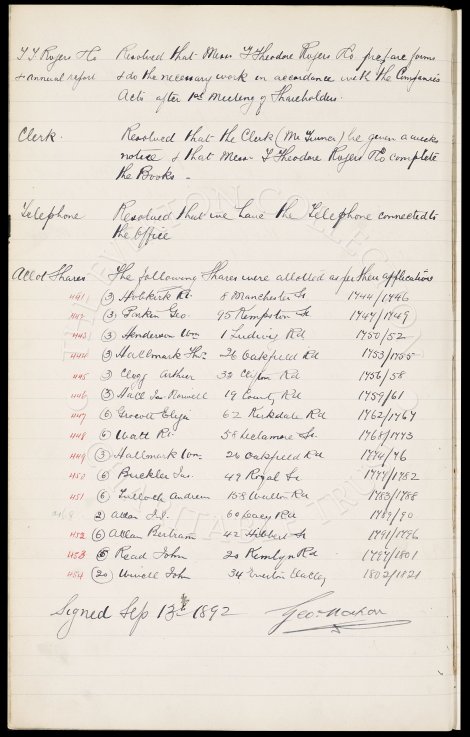 T T Rogers & Co Resolved that Messrs T Theodore Rogers & Co prepare forms
& annual report & do the necessary work in accordance with the Companies
Acts after 1st Meeting of Shareholders.
Clerk. Resolved that the Clerk (Mr Turner) be given a weeks
notice & that Messrs T Theodore Rogers & Co complete
the Books -
Telephone Resolved that we have the Telephone connected to
the office
Allot Shares The following Shares were allotted as per their applications
441 3 Holkirk Rt. 8 Manchester St 1744/1746
442 3 Parker Geo 95 Kempston St 1747/1749
443 3 Henderson Wm 1 Ludwig Rd 1750/52
444 3 Hallmark Thos. 26 Oakfield Rd 1753/1755
445 3 Clegg Arthur 32 Clifton Rd 1756/58
446 3 Hall Jas. 19 County Rd 1759/61
447 6 62 Kirkdale Rd 1762/1767
448 6 Watt Rt. 58 St. 1768/1773
449 3 Hallmark Wm. 26 Oakfield Rd 1774/76
450 6 Buckley Jas. 49 Royal St 1777/1782
451 6 Tulloch Andrew 158 Walton Rd 1783/1788
2 Allan 60 Dacey Rd 1789/90
452 6 Allan Bertram 42 Hibbert St 1791/1796
453 5 Read John 20 Kemlyn Rd 1797/1801
454 20 John 34 Everton Valley 1802/1821
Signed Sep 13th 1892 Geo. Mahon